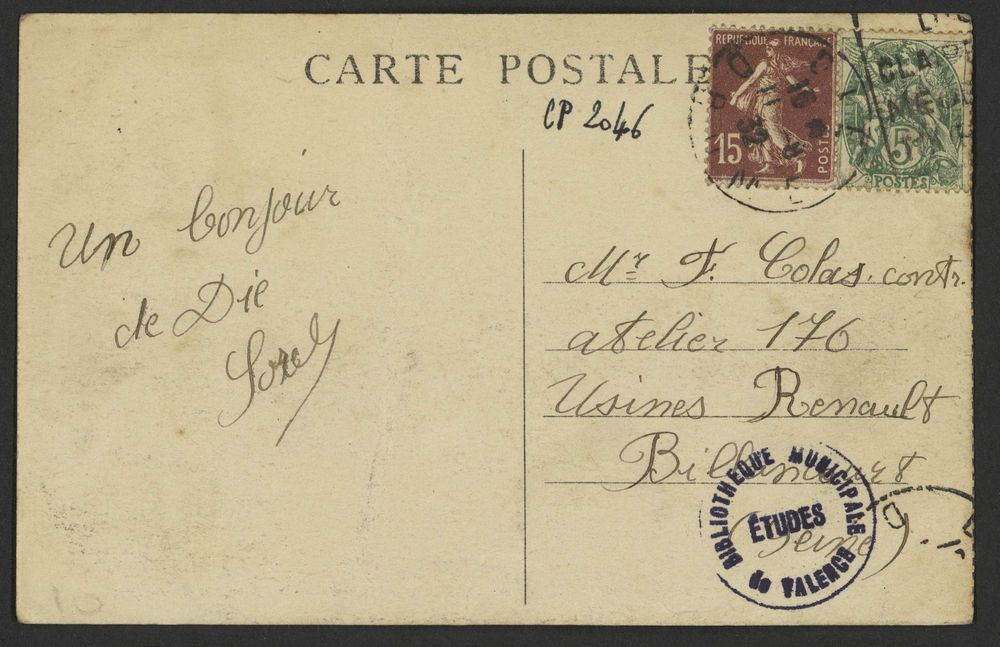 CARTE POSTALE
CP 2046
REPUBLIQUE FRANÇAISE
15
POSTES
5
POSTES
Un bonjour
de Die
Sorel
Mr F. Colas. contr.
atelier 176
Usines Renault
Billancourt
(Seine)
BIBLIOTHEQUE MUNICIPALE
ÉTUDES
de VALENCE